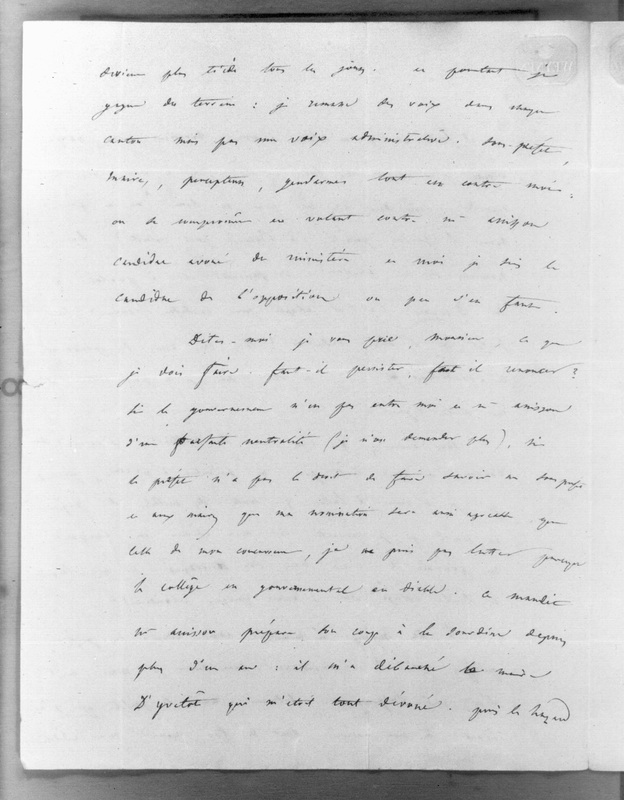 devient plus tiède tous les jours. et pourtant je
gagne du terrain : je ramasse des voix dans chaque
canton mais pas une voix administrative. sous-préfet,
maires, percepteurs, gendarmes tout est contre moi :
on se compromet en votant contre mr anisson
candidat avoué du ministère et moi je suis le
candidat de l'opposition ou peu s'en faut.
Dites-moi je vous prie, Monsieur, ce que
je dois faire. faut-il persister, faut il renoncer ?
Si le gouvernement n'est pas entre moi et mr anisson
d'une parfaite neutralité (je n'ose demander plus), si
le préfet n'a pas le droit de faire savoir au sous préfet
et aux maires que ma nomination sera aussi agréable que
celle de mon concurrent, je ne puis pas lutter puisque
le collège est gouvernemental en diable. Ce maudit
mr anisson prépare son coup à la sourdine depuis
plus d'un an : il m'a débauché le maire
D'yvetôt qui m'était tout dévoué. puis le hazard